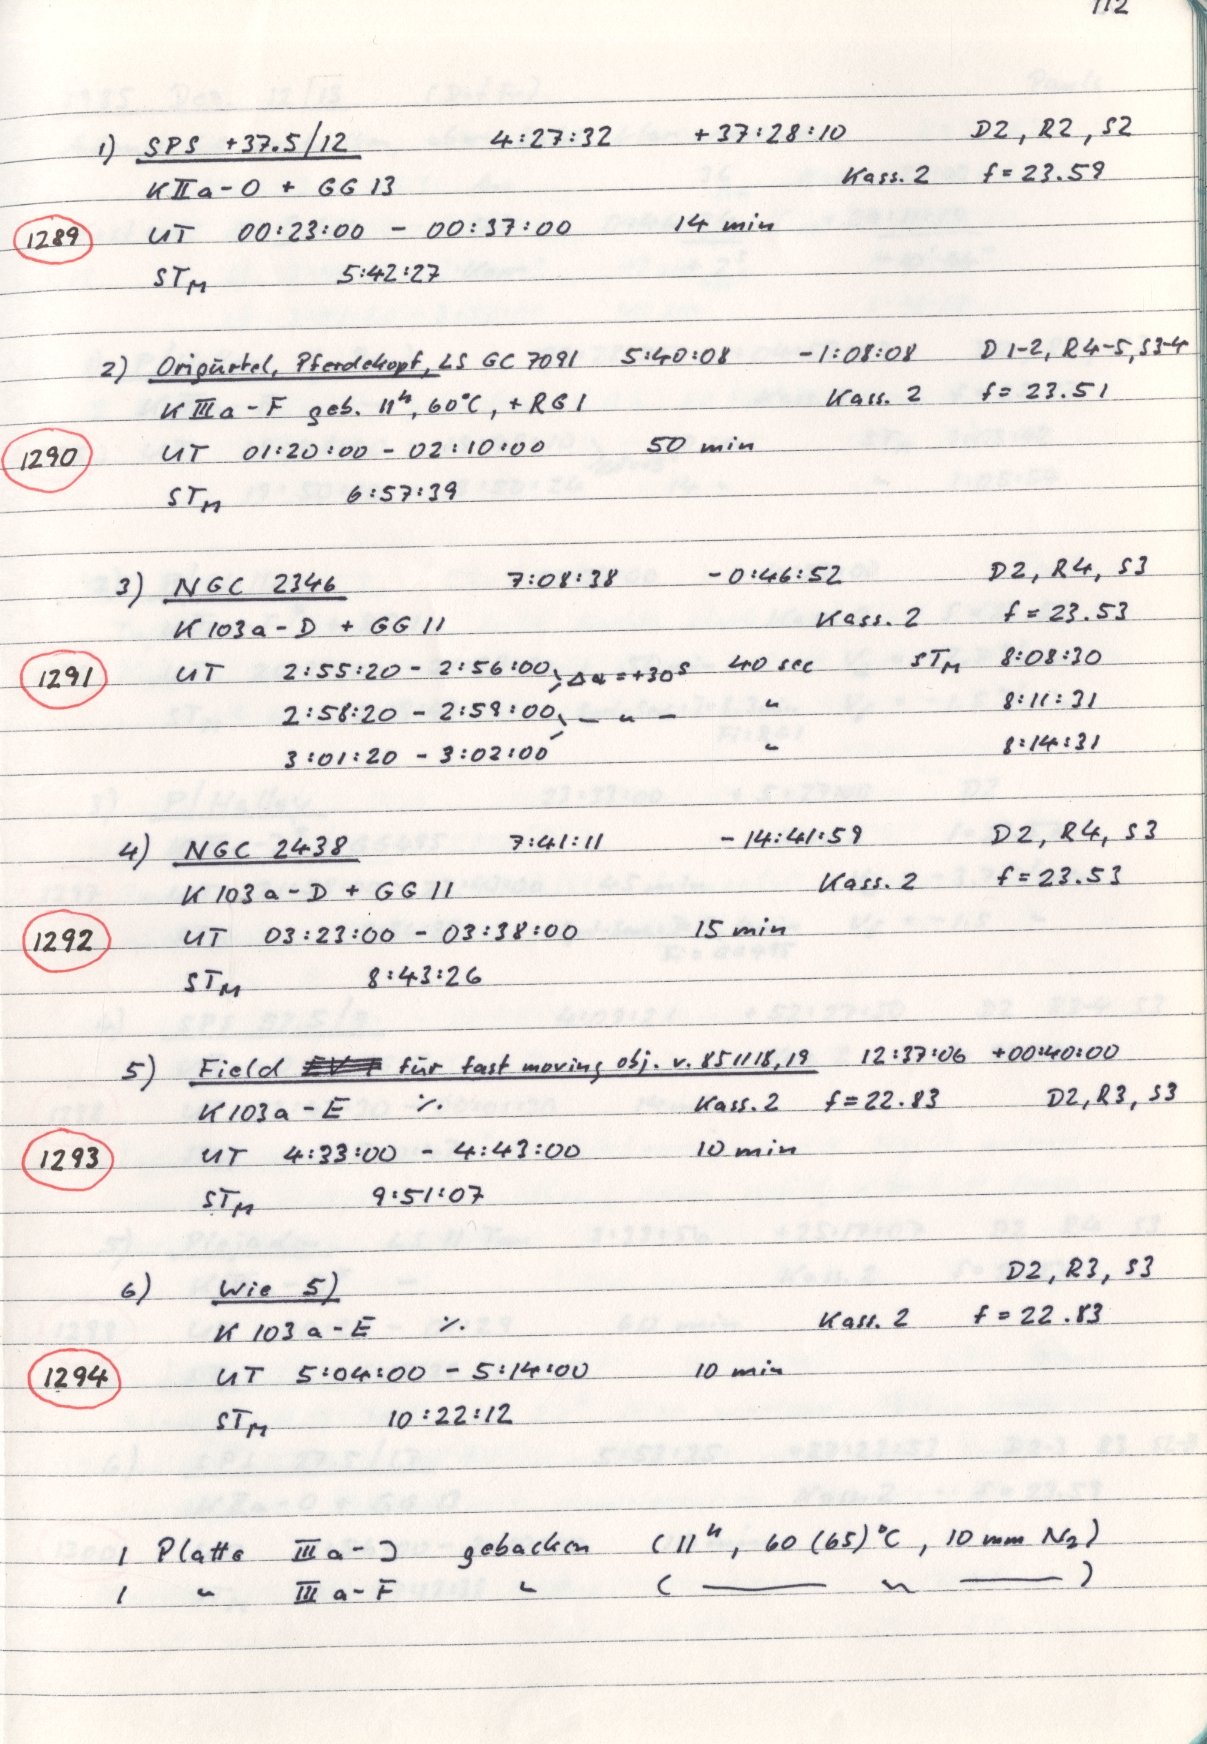 112
1) SPS +37.5/12 4:27:32 +37:28:10 D2, R2, S2
KIIa-O + GG 13 Kass. 2 f=23.59
1289 UT 00:23:00 - 00:37:00 14 min
STM 5:42:27
2) Origürtel, Pferdekopf, LS GC 7091 5:40:08 -1:08:08 D1-2, R4-5, S3-4
KIIIa-F geb. 11h, 60°C, +RG1 Kass. 2 f=23.51
1290 UT 01:20:00 - 02:10:00 50 min
STM 6:57:39
3) NGC 2346 7:08:38 -0:46:52 D2, R4, S3
K103a-D + GG11 Kass. 2 f=23.53
1291 UT 2:55:20 - 2:56:00 Δα=+30s 40 sec STM 8:08:30
2:58:20 - 2:59:00 — " — " 8:11:31
3:01:20 - 3:02:00 " 8:14:31
4) NGC 2438 7:41:11 -14:41:59 D2, R4, S3
K103a-D + GG11 Kass. 2 f=23.53
1292 UT 03:23:00 - 03:38:00 15 min
STM 8:43:26
5) Field für fast moving obj. v. 851118,19 12:37:06 +00:40:00
K103a-E ·/. Kass. 2 f=22.83 D2, R3, S3
1293 UT 4:33:00 - 4:43:00 10 min
STM 9:51:07
6) Wie 5) D2, R3, S3
K103a-E ·/. Kass. 2 f=22.83
1294 UT 5:04:00 - 5:14:00 10 min
STM 10:22:12
1 Platte IIIa-J gebacken (11h, 60(65)°C, 10 mm N2)
1 " IIIa-F " ( — " — )